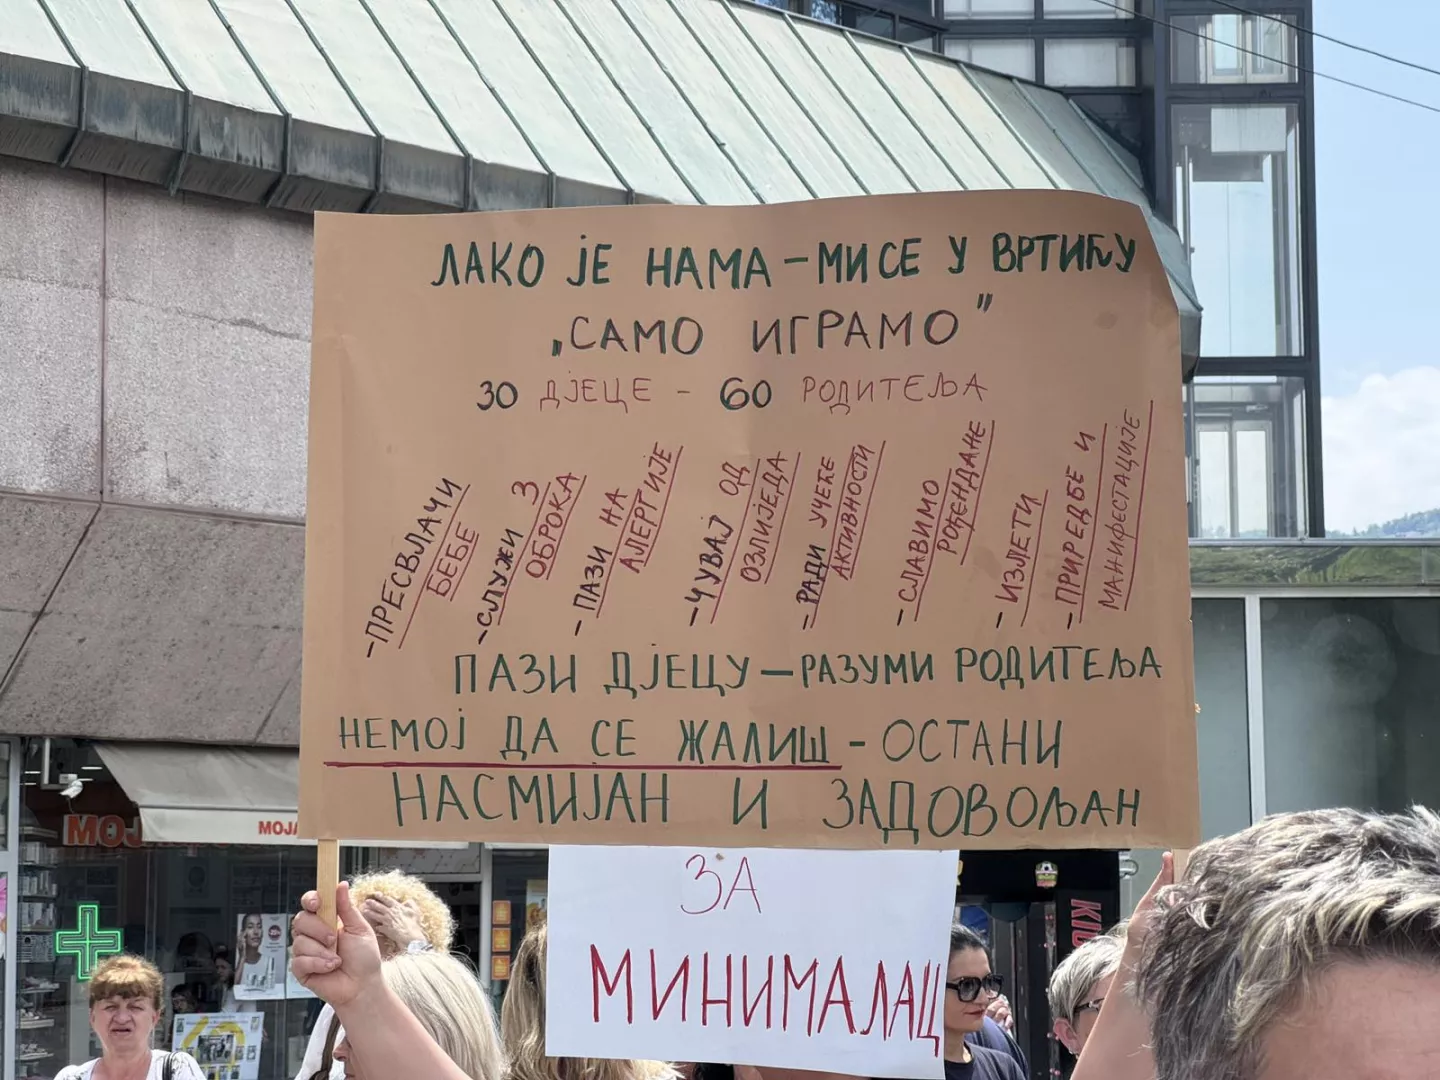 ЛАКО ЈЕ НАМА – МИ СЕ У ВРТИЋУ
„САМО ИГРАМО"
30 ДЈЕЦЕ - 60 РОДИТЕЉА
-ПРЕСВЛАЧИ
БЕБЕ
-СЛУЖИ 3
ОБРОКА
-ПАЗИ НА
АЛЕРГИЈЕ
-ЧУВАЈ ОД
ОЗЛИЈЕДА
-РАДИ УЧЕЋЕ
АКТИВНОСТИ
-СЛАВИМО
РОЂЕНДАНЕ
-ИЗЛЕТИ
-ПРИРЕДБЕ И
МАНИФЕСТАЦИЈЕ
ПАЗИ ДЈЕЦУ – РАЗУМИ РОДИТЕЉА
НЕМОЈ ДА СЕ ЖАЛИШ - ОСТАНИ
НАСМИЈАН И ЗАДОВОЉАН
ЗА
МИНИМАЛАЦ
MOJ
MOJA